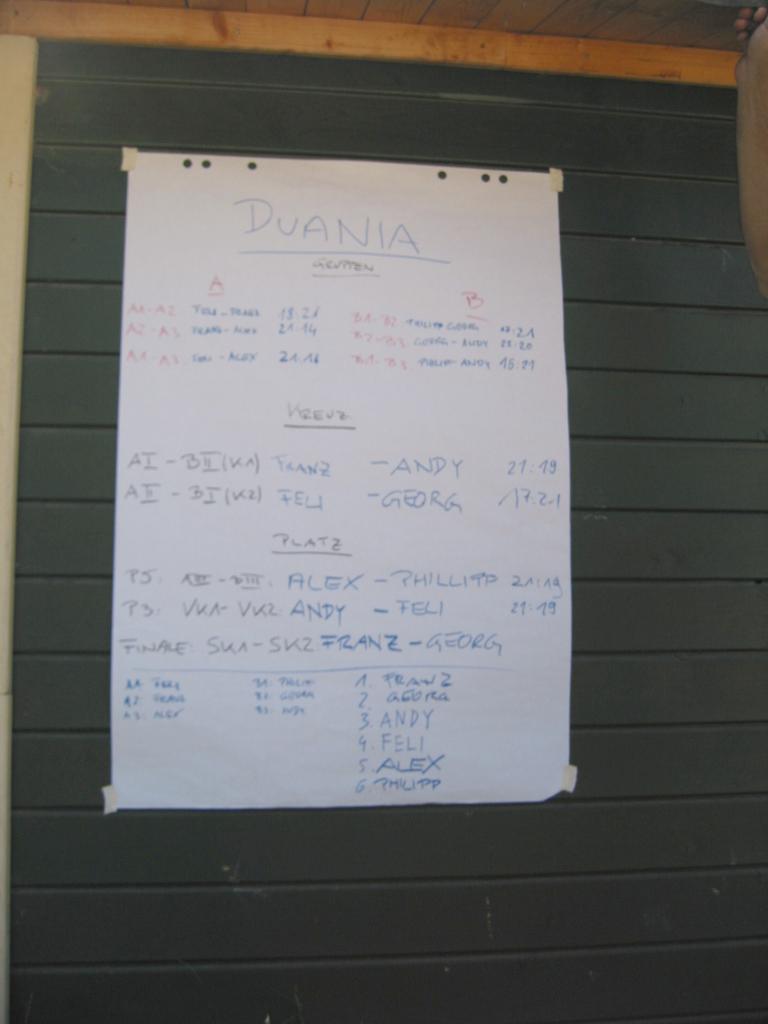 DUANIA
GRUPPEN
A
B
A1-A2: FELI-FRANZ 18:21
B1-B2: PHILIPP-GEORG :21
A2-A3: FRANZ-ALEX 21:14
B2-B3: GEORG-ANDY :20
A1-A3: FELI-ALEX 21:
B1-B3: PHILIPP-ANDY 15:21
KREUZ
AI - BII (K1) FRANZ - ANDY 21:19
AII - BI (K2) FELI - GEORG 17:21
PLATZ
P5: AIII - BIII: ALEX - PHILLIPP 21:19
P3: VK1 - VK2: ANDY - FELI 21:19
FINALE: SK1 - SK2: FRANZ - GEORG
A1: FELI B1: PHILIPP 1. FRANZ
A2: FRANZ B2: GEORG 2. GEORG
A3: ALEX B3: ANDY 3. ANDY
4. FELI
5. ALEX
6. PHILIPP